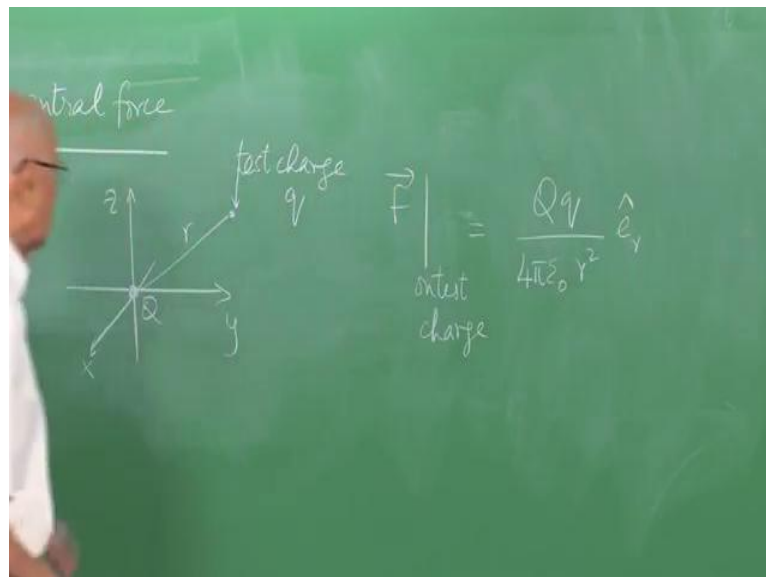 central force
test charge
q
z
r
Q
y
x
F⃗| on test charge = Qq / 4πε₀ r² ê_r